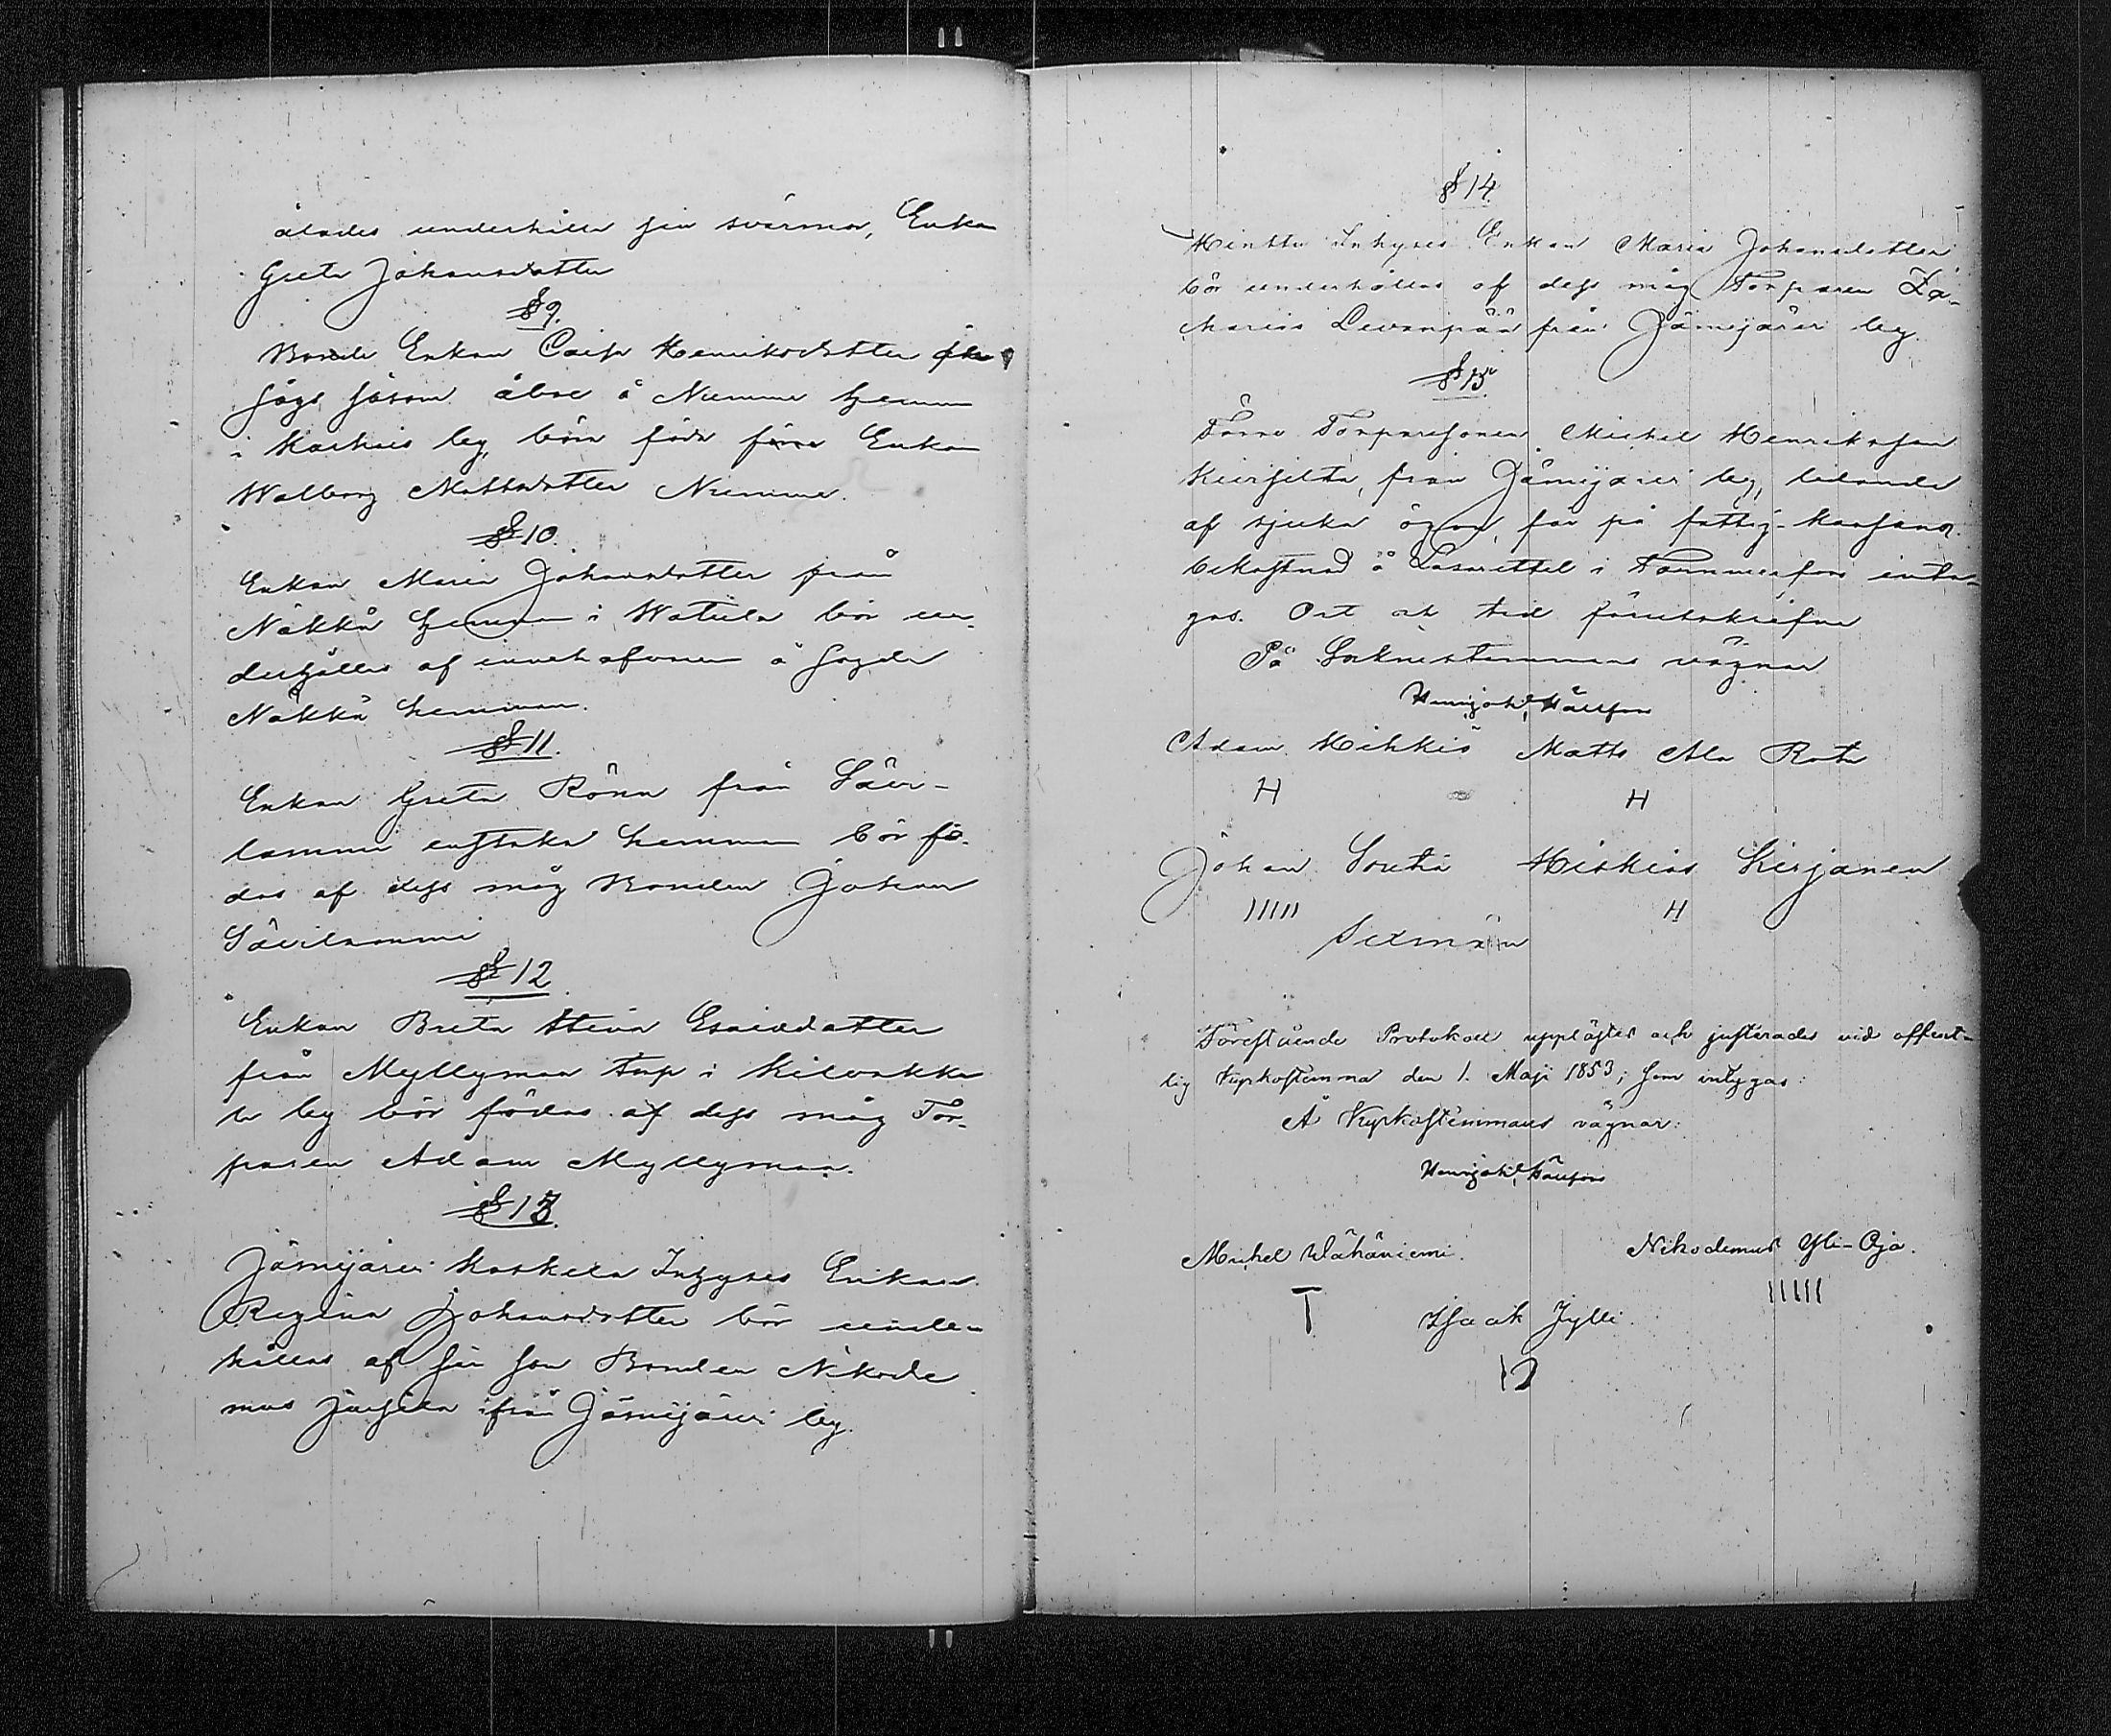 ålades underhålla sin svärmor, Enkan
Greta Johansdotter
§ 9.
Bonde Enkan Caisa Henriksdotter
såge såsom åboe å Niemme hemman
i Kaskais by, böra föda Enkan
Walborg Mattsdotter Niemme.
§ 10.
Enkan Maria Johansdotter från
Näkkä hemman i Watula bör un-
derhålles af innehafvaren å sagde
Näkkä hemman.
§ 11.
Enkan Greta Rönn från Sävi-
lammi enstaka hemman bör fö-
das af dess måg Bonden Johan
Sävilammi
§ 12
Enkan Breta Stina Esaiædotter
från Myllymaa torp i Kilvakka
la by bör födas af dess måg Tor-
paren Adam Myllymaa.
§ 13.
Jämijärvi Inhyses Enkan
Regina Johansdotter bör under-
hållas af sin son Bonden Nikode
mus från Jämijärvi by.
§ 14.
Inhyses Enkan Maria Johansdotter
bör underhållas af dess måg Torparen Za-
charias Levonpää från Jämijärvi by.
§ 15.
Förre Torparesonen Michel Henriksson
från Jämijärvi by, lidande
af sjuka ögon, får på fattig-kassans
bekostnad å Lasarettet i Tammerfors inta-
gas. Ort och tid förutskrifne
På Socknestemmans vägnar
Adam Mihkiö Matts Ala Rota
H H
Johan Soutu Hiskias Kirjanen
IIIII H
Sexmän
Förestående Protokoll upplästes och justerades vid offent-
lig Kyrkostemma den 1. Maji 1853; som intygas:
Å Kyrkostemmans vägnar:
Michel Wähäniemi. Nikodemus Yli-Oja.
T IIIIII
Isaak Jylli.
12